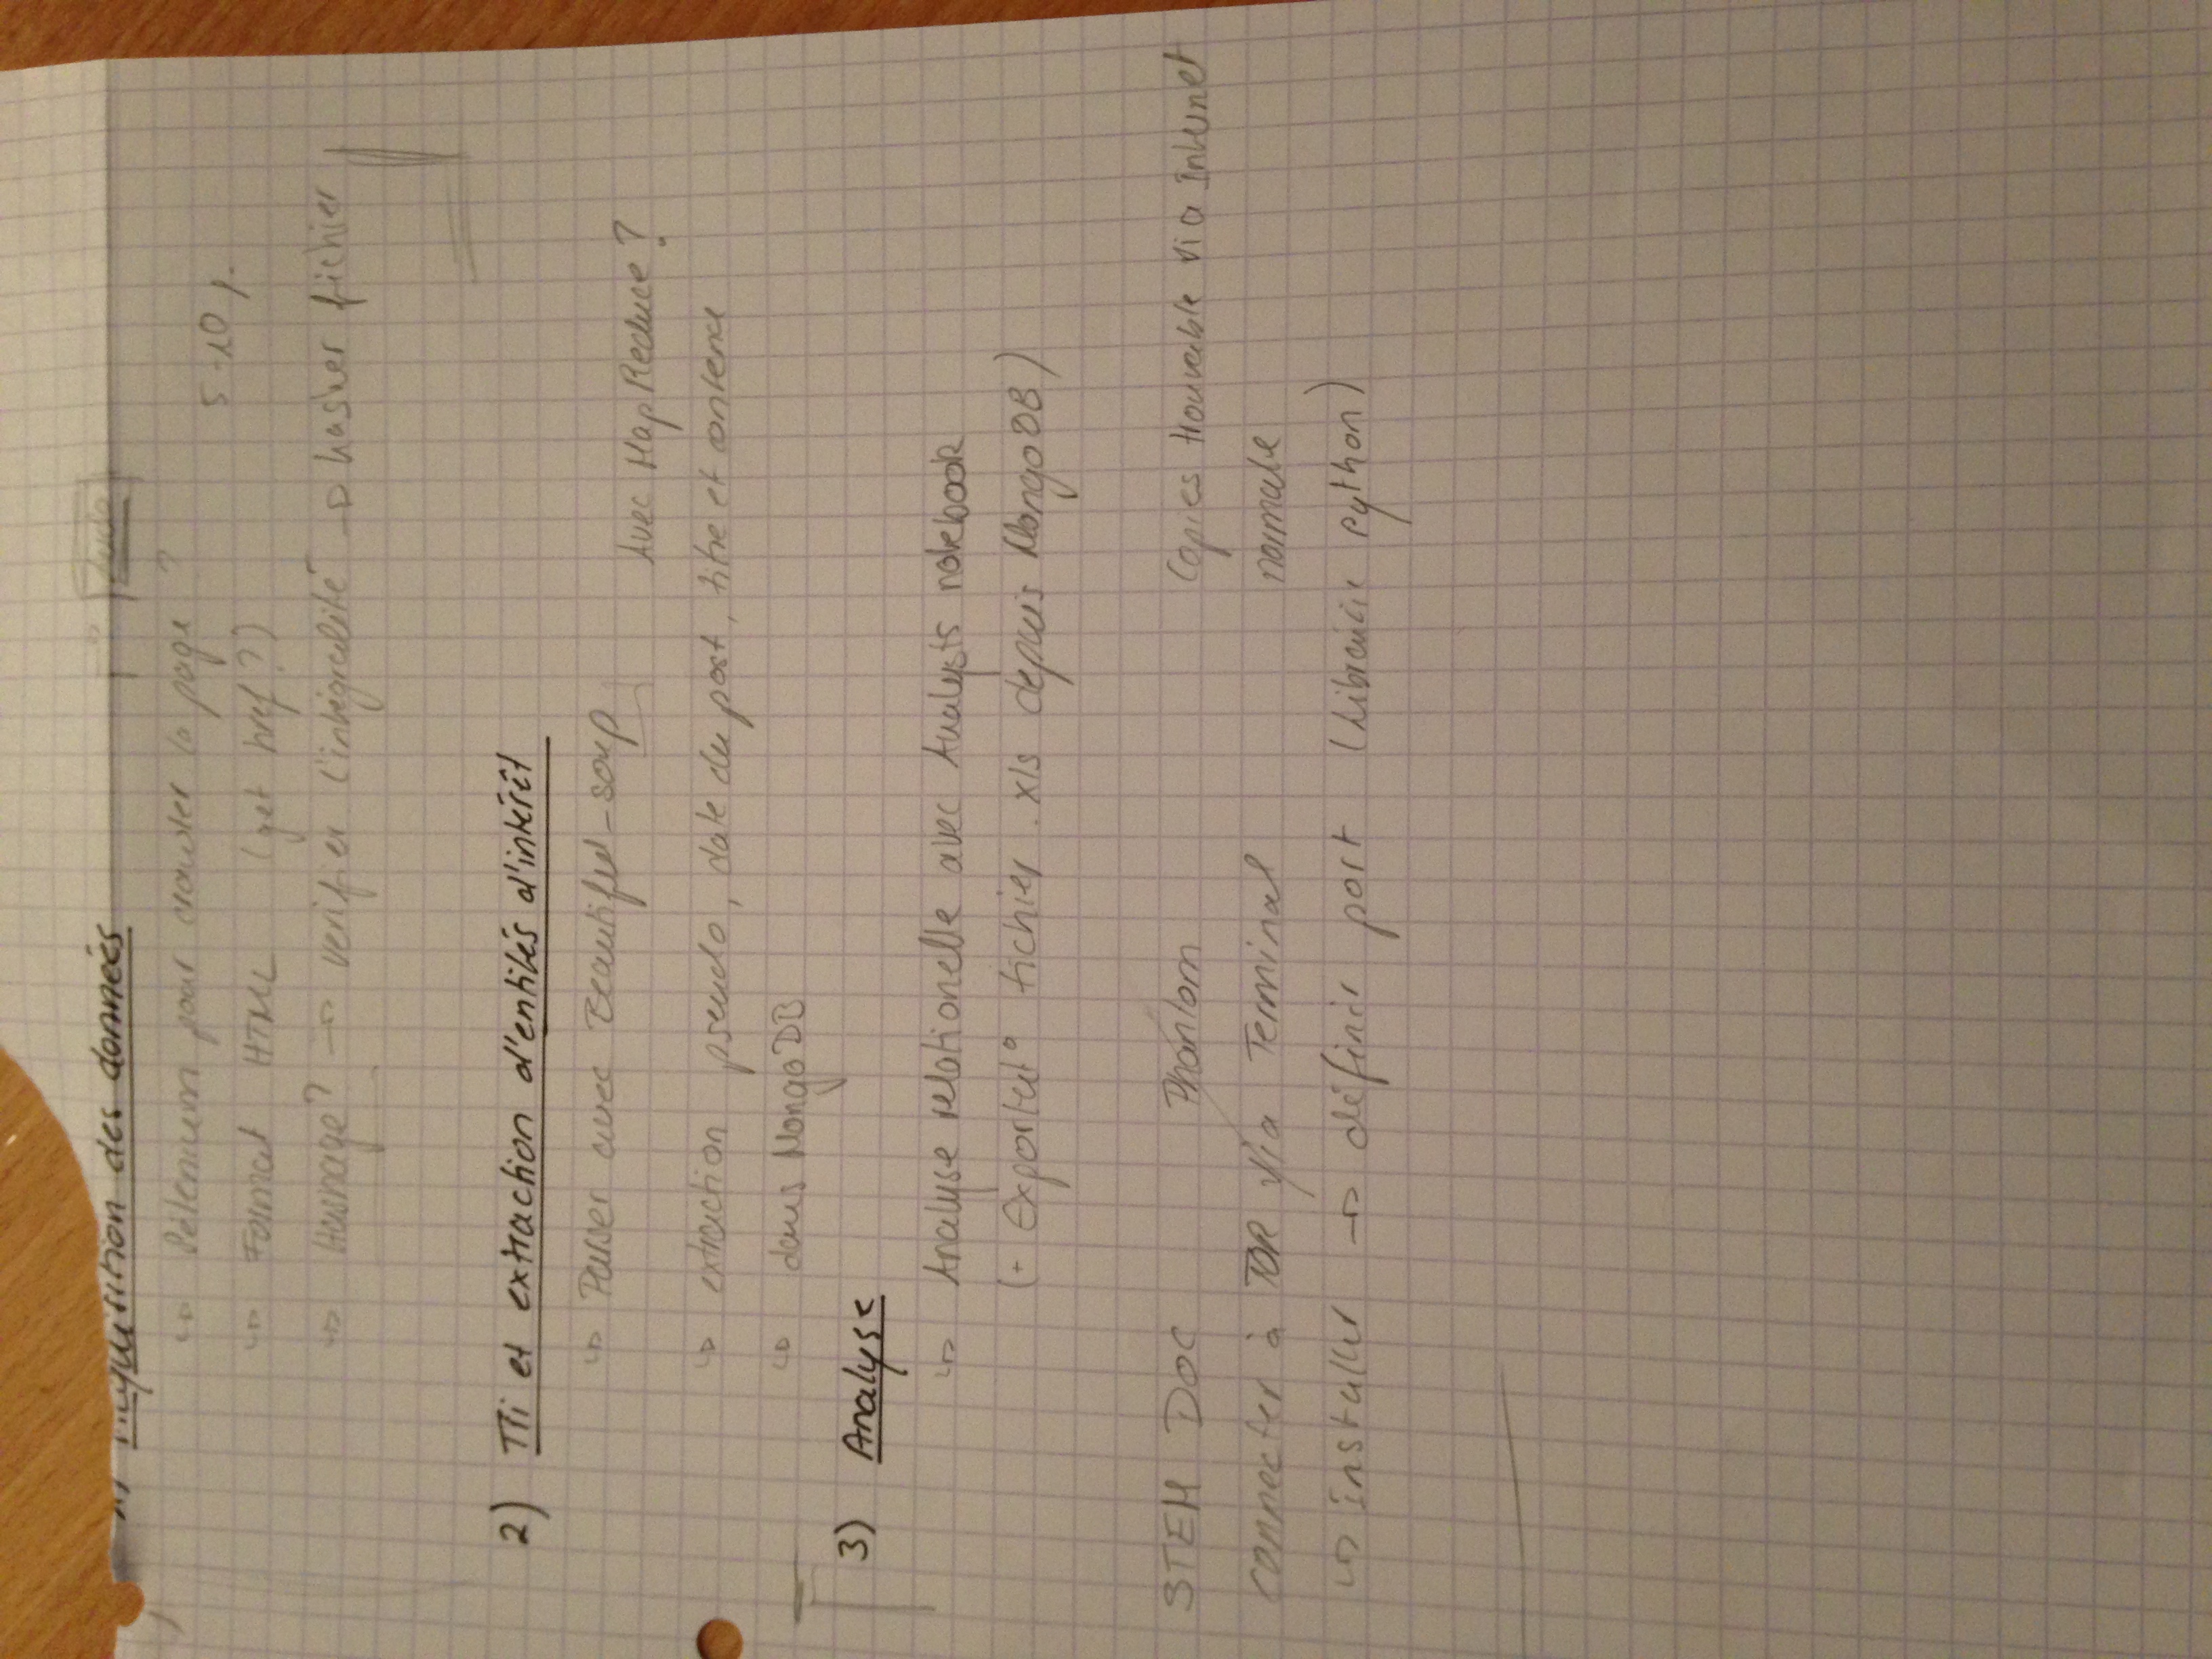 1) Acquisition des données
↳ Sélenium pour crawler la page ?
5-10 p.
↳ Format HTML (get href ?)
↳ Hashage ? → verifier l'intégralité → hasher fichier
2) Tri et extraction d'entités d'intérêt
↳ Parser avec Beautiful-soup
Avec MapReduce ?
↳ extraction pseudo, date du post, titre et contenu
↳ dans MongoDB
3) Analyse
↳ Analyse relationelle avec Analysts notebook
(- Exportat° fichier .xls depuis MongoDB)
STEM DOC Phantom Copies trouvable via Internet
connecter à TOR via Terminal normale
↳ installer → définir port (Librairie python)